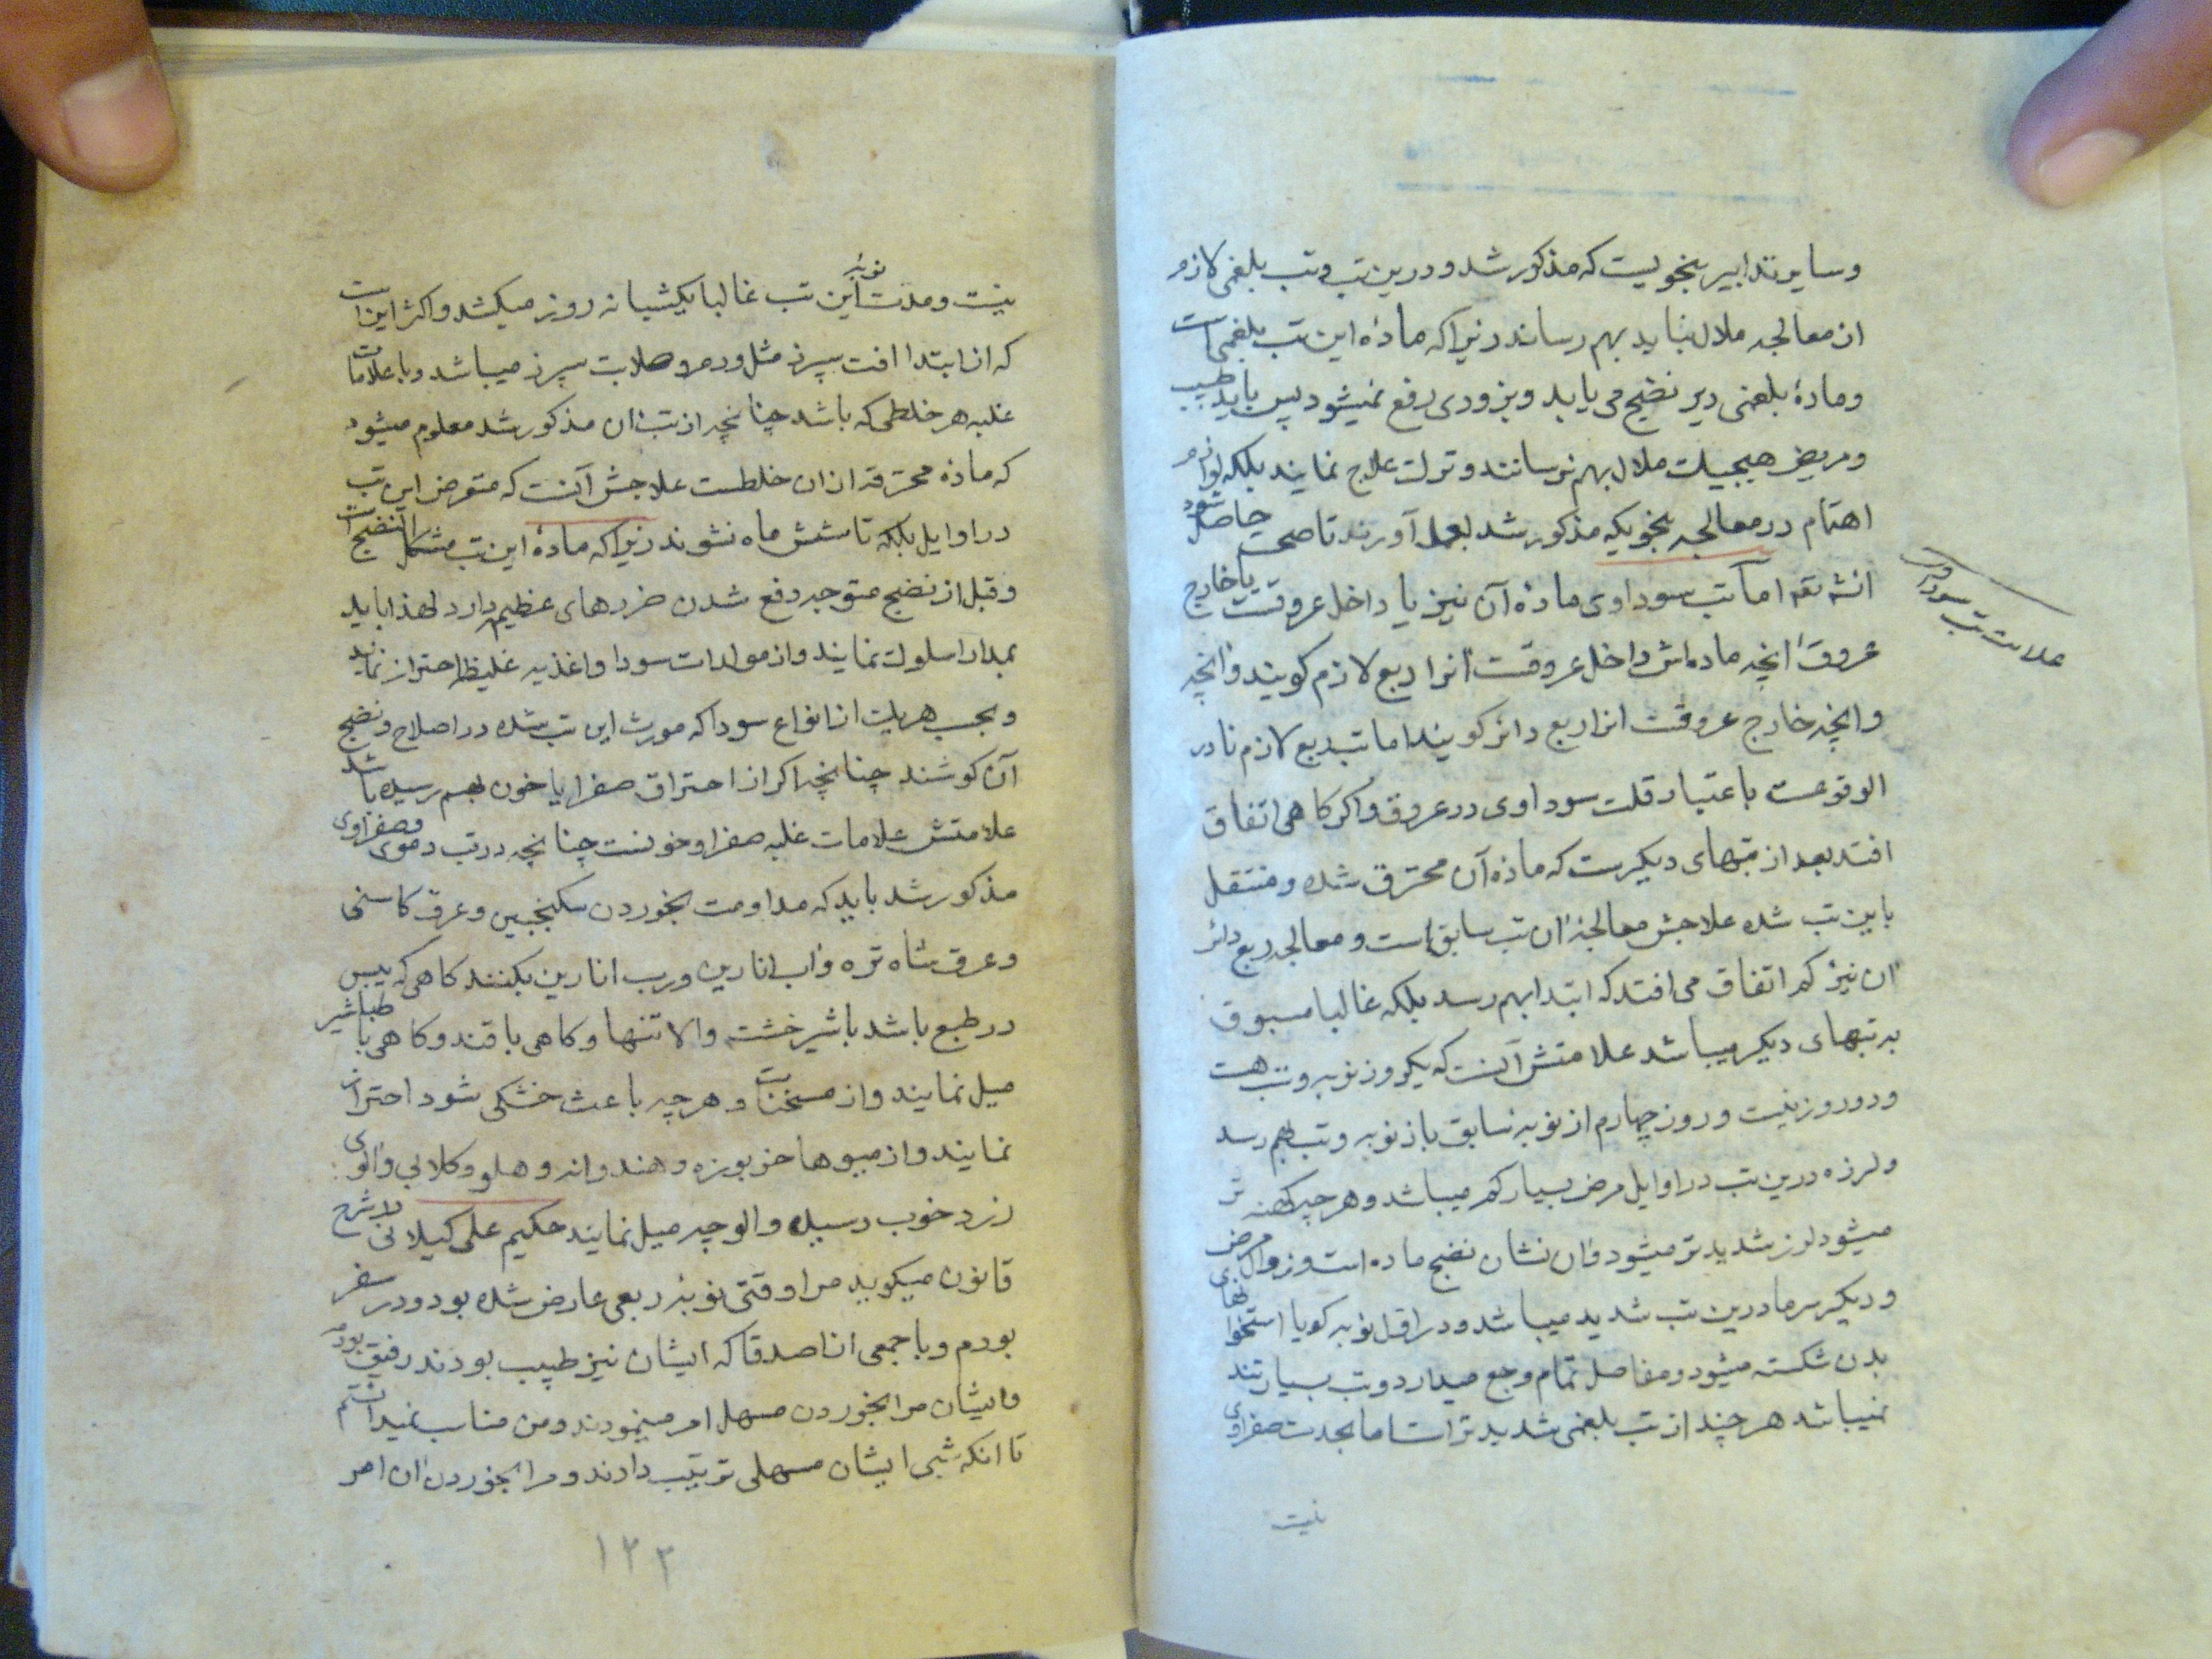 وسایر تدابیر بنحویست که مذکور شد و درین تب و تب بلغمی لازم
از معالجه ملال نباید بهم رساند زیرا که مادهٔ این تب بلغمی است
ومادهٔ بلغمی دیر نضج می یابد وبزودی رفع نمیشود پس باید طبیب
ومریض هیچیک ملال بهم نرسانند وترک علاج نمایند بلکه لوازم
اهتمام در معالجه بنحویکه مذکور شد بعمل آورند تا صحت حاصل شود
انش تعه اما تب سوداوی مادهٔ آن نیز یا داخل عروقست یا خارج
علامت تب سوداوی
عروق آنچه ماده‌اش داخل عروقست آنرا ربع لازم کویند وآنچه
وآنچه خارج عروقست انرا ربع دائر کویند اما تب ربع لازم نادر
الوقوعست باعتبار قلت سوداوی در عروق واکر کاهی اتفاق
افتد بعد از تبهای دیکرست که مادهٔ آن محترق شده ومنتقل
باین تب شده علاجش معالجهٔ آن تب سابق است و معالجه ربع دائر
آن نیز کم اتفاق می افتد که ابتدا بهم رسد بلکه غالبا مسبوق
به تبهای دیکر میباشد علامتش آنست که یکروز نوبه وتب هست
ودو روز نیست وروز چهارم از نوبه سابق باز نوبه وتب بهم رسد
ولرزه درین تب در اوایل مرض بسیار کم میباشد وهر چه کهنه تر
میشود لرز شدید تر میشود وآن نشان نضج ماده است وزوال مرض
ودیکر سرما درین تب شدید میباشد ودر اول نوبه کویا استخوانهای
بدن شکسته میشود ومفاصل تمام وجع میدارد وتب بسیار تند
نمیباشد هر چند از تب بلغمی شدید تر است اما بحدت صفراوی
نیست

نیست ومدت نوبهٔ این تب غالبا یکشبانه روز میکشد واکثر این است
که از ابتدا افت سپرز مثل ورم وصلابت سپرز میباشد وباعلامات
غلبه هر خلطی که باشد چنانچه از تب آن مذکور شد معلوم میشود
که مادهٔ محترقه از ان خلطست علاجش آنست که متعرض این تب
در اوایل بلکه تا شش ماه نشوند زیرا که مادهٔ این تب مشکل النضج است
وقبل از نضج متوجه دفع شدن ضررهای عظیم دارد لهذا باید
بمدارا سلوک نمایند واز مولدات سودا واغذیه غلیظه احتراز نمایند
وبحسب هریک از انواع سودا که مورث این تب شده در اصلاح ونضج
آن کوشند چنانچه اکر از احتراق صفرا یا خون بهم رسیده باشد
علامتش علامات غلبه صفرا وخونست چنانچه در تب دموی وصفراوی
مذکور شد باید که مداومت بخوردن سکنجبین وعرق کاسنی
وعرق شاه تره وآب انارین ورب انارین بکنند کاهی که یبس
در طبع باشد با شیرخشت والا تنها وکاهی با قند وکاهی با طباشیر
میل نمایند واز مسخنات وهر چه باعث خشکی شود احتراز
نمایند واز میوها خربوزه وهندوانه وهلو وکلابی وآلوی
زرد خوب رسیده والوچه میل نمایند حکیم علی کیلانی در شرح
قانون میکوید مرا وقتی نوبهٔ ربعی عارض شده بود ودر سفر
بودم وبا جمعی از اصدقا که ایشان نیز طبیب بودند رفیق بودم
وایشان مرا بخوردن مسهل امر مینمودند ومن مناسب نمیدانستم
تا آنکه شبی ایشان مسهلی ترتیب دادند ومرا بخوردن آن امر
۱۲۳